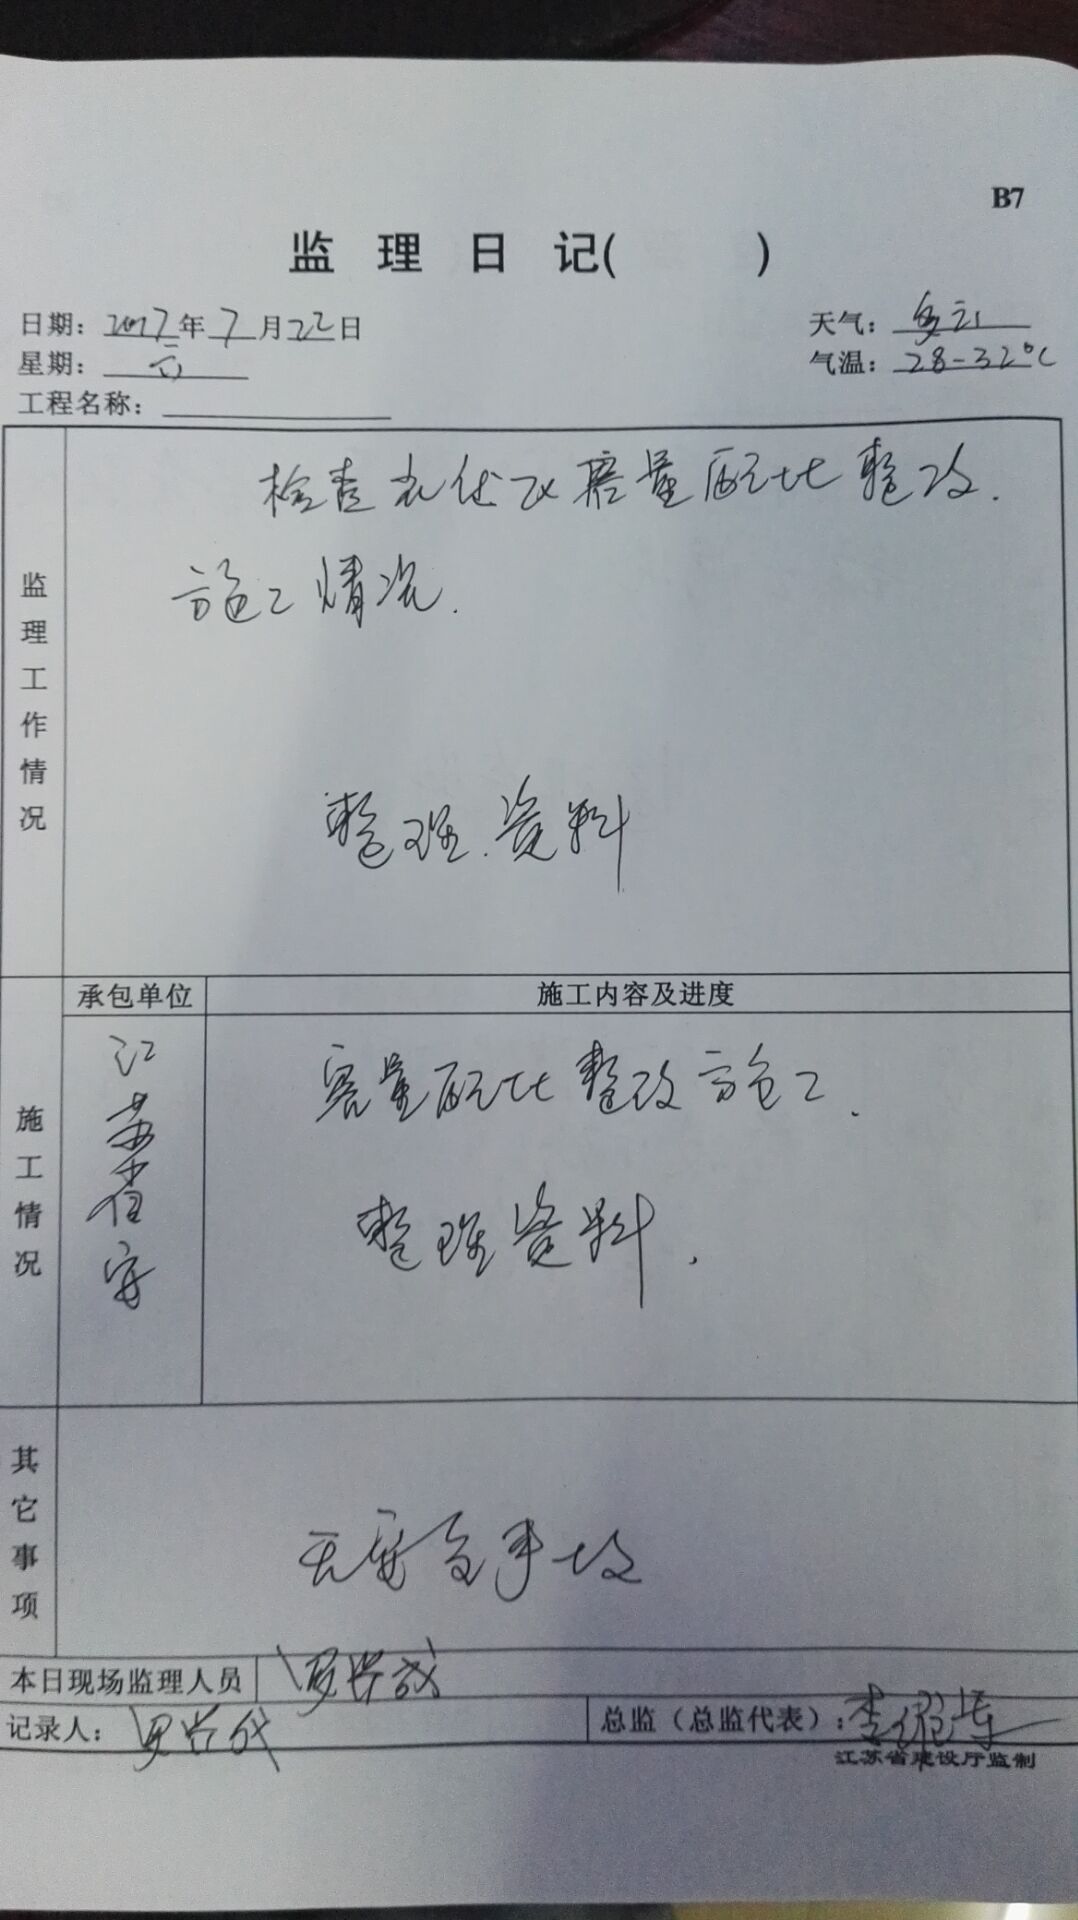 B7
监 理 日 记( )
日期：2017年7月22日
天气：多云
星期：六
气温：28-32℃
工程名称：
监理工作情况
检查 容量配比整改.
施工情况.
整理.资料
承包单位
施工内容及进度
施工情况
江苏省安
容量配比整改施工.
整理资料.
其它事项
无安全事故
本日现场监理人员
记录人：
总监（总监代表）：李
江苏省建设厅监制